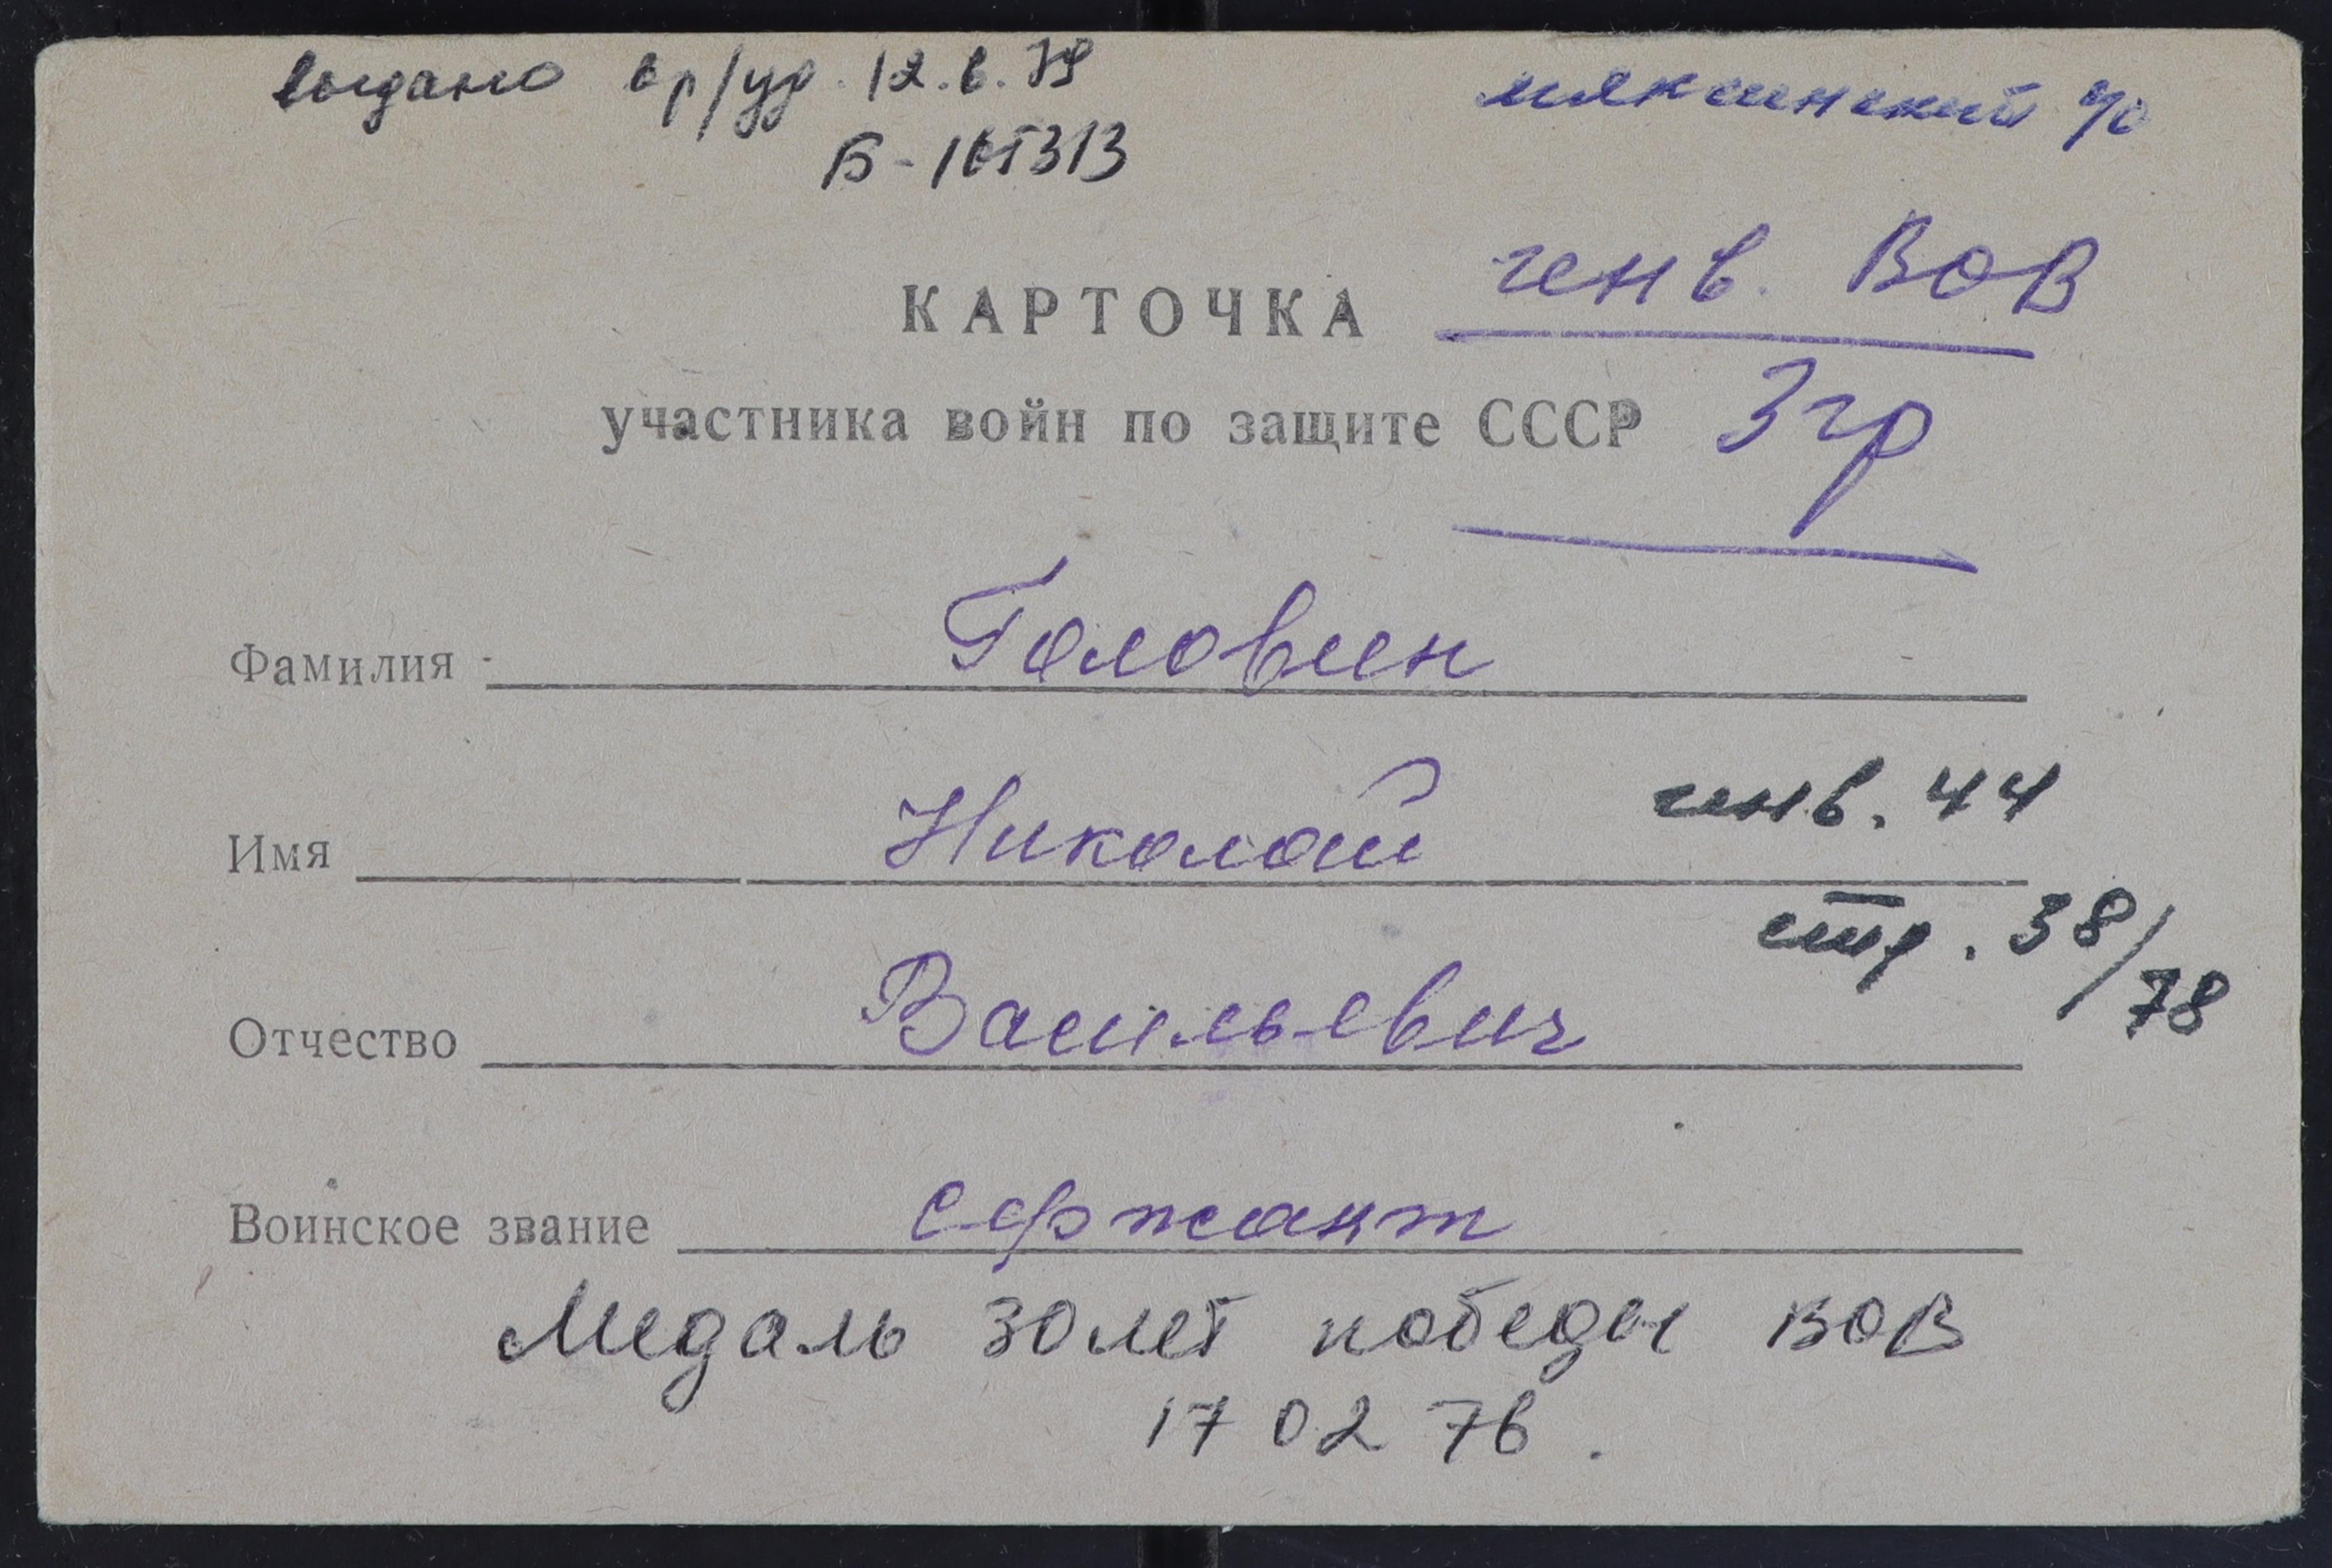 выдано вр/уд. 12.6.79
мяксинский с/с
Б-165313
КАРТОЧКА
инв. ВОВ
участника войн по защите СССР
3 гр
Фамилия Головин
Имя Николай
инв. 44
стр. 38/78
Отчество Васильевич
Воинское звание сержант
Медаль 30 лет победы ВОВ
17 02 76.